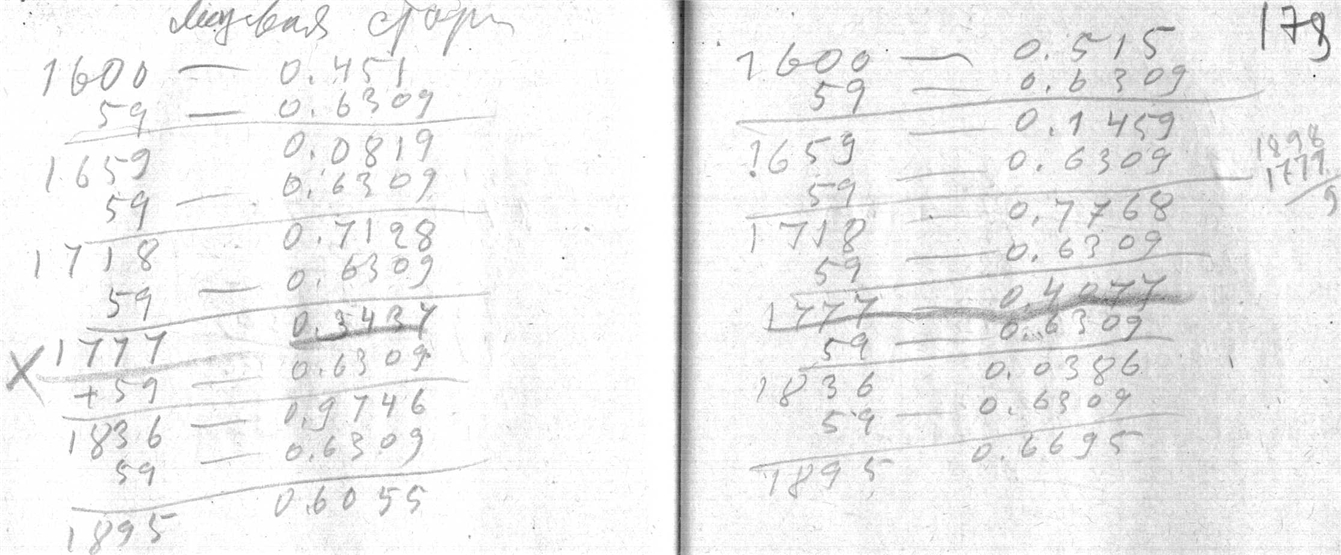 лицевая
1600 — 0.451
59 — 0.6309
1659 0.0819
59 — 0.6309
1718 0.7128
59 — 0.6309
1777 0.3437
X
+59 — 0.6309
1836 — 0.9746
59 — 0.6309
1895 0.6055
179
1600 — 0.515
59 — 0.6309
1659 — 0.1459
59 — 0.6309
1718 — 0.7768
59 — 0.6309
1777 — 0.4077
59 — 0.6309
1836 0.0386
59 — 0.6309
1895 0.6695
1898
1777